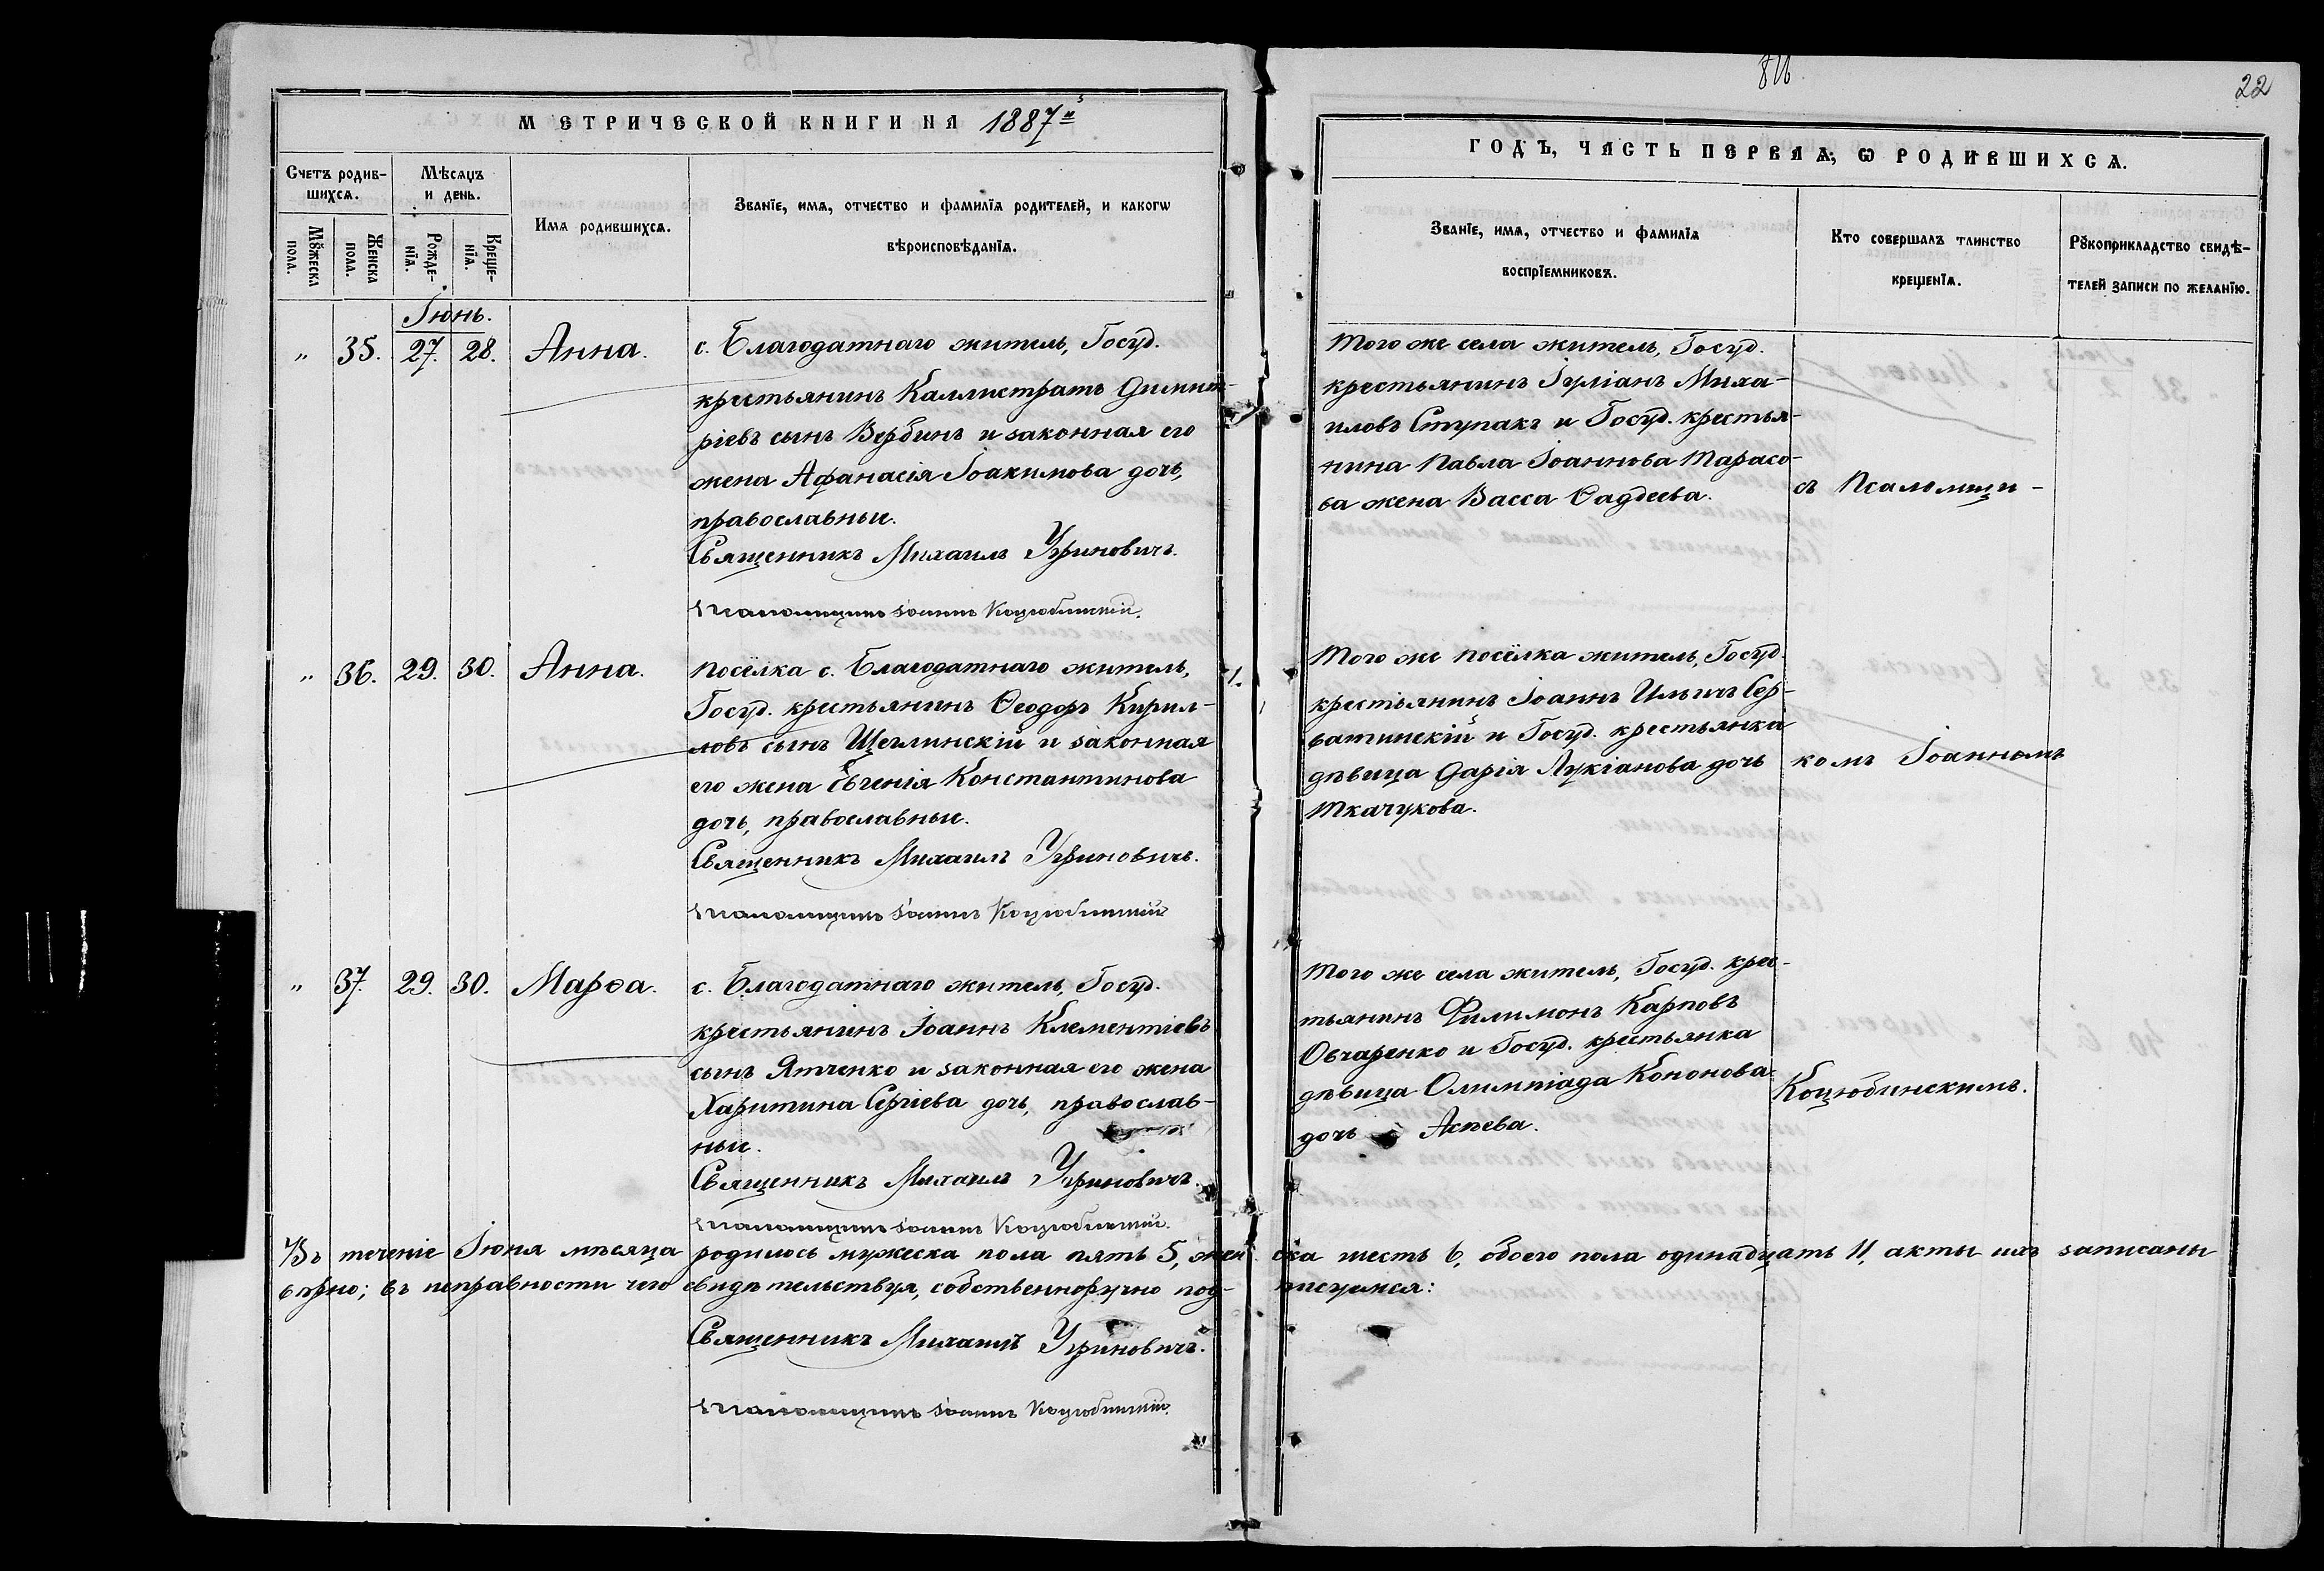 816
22
МЕТРИЧЕСКОЙ КНИГИ НА 1887й
ГОДЪ, ЧАСТЬ ПЕРВАѦ, Ѡ РОДИВШИХСѦ.
Счетъ родив-
шихсѧ.
Мѣсѧцъ
и день.
Мꙋжеска
пола.
Женска
пола.
Рожде-
нїѧ.
Креще-
нїѧ.
Имѧ родившихсѧ.
Званїе, имѧ, отчество и фамилїѧ родителей, и какогѡ
вѣроисповѣданїѧ.
Званїе, имѧ, отчество и фамилїѧ
воспрїемниковъ.
Кто совершалъ таинство
крещенїѧ.
Рꙋкоприкладство свидѣ-
телей записи по желанїю.
Іюнь.
" 35. 27. 28. Анна.
с. Благодатнаго житель, Госуд.
крестьянинъ Каллистратъ Димит-
ріевъ сынъ Вербинъ и законная его
жена Афанасія Іоакимова дочь,
православные.
Священникъ Михаилъ Угриновичъ.
Псаломщикъ Іоаннъ Коцюбинскій.
Того же села житель, Госуд.
крестьянинъ Іуліанъ Миха-
иловъ Ступакъ и Госуд. крестья-
нина Павла Іоаннова Тарасо-
ва жена Васса Ѳаддеева.
съ Псаломщи-
" 36. 29. 30. Анна.
посёлка с. Благодатнаго житель,
Госуд. крестьянинъ Ѳеодоръ Кирил-
ловъ сынъ Щеглинскій и законная
его жена Евгенія Константинова
дочь, православные.
Священникъ Михаилъ Угриновичъ.
Псаломщикъ Іоаннъ Коцюбинскій
Того же посёлка житель, Госуд.
крестьянинъ Іоаннъ Ильинъ Сер-
ватинскій и Госуд. крестьянка
дѣвица Дарія Лукіанова дочь
Ткачукова.
комъ Іоанномъ
" 37. 29. 30. Марѳа.
с. Благодатнаго житель, Госуд.
крестьянинъ Іоаннъ Клементіевъ
сынъ Ятченко и законная его жена
Харитина Сергіева дочь, православ-
ные.
Священникъ Михаилъ Угриновичъ.
Псаломщикъ Іоаннъ Коцюбинскій.
Того же села житель, Госуд. крес-
тьянинъ Филимонъ Карповъ
Овчаренко и Госуд. крестьянка
дѣвица Олимпіада Кононова
дочь Асѣева.
Коцюбинскимъ.
Въ теченіе Іюня мѣсяца родилось мужеска пола пять 5, жен ска шесть 6, обоего пола одинадцать 11, акты ихъ записаны
вѣрно; въ исправности чего свидѣтельствуя, собственноручно под- писуемся:
Священникъ Михаилъ Угриновичъ.
Псаломщикъ Іоаннъ Коцюбинскій.